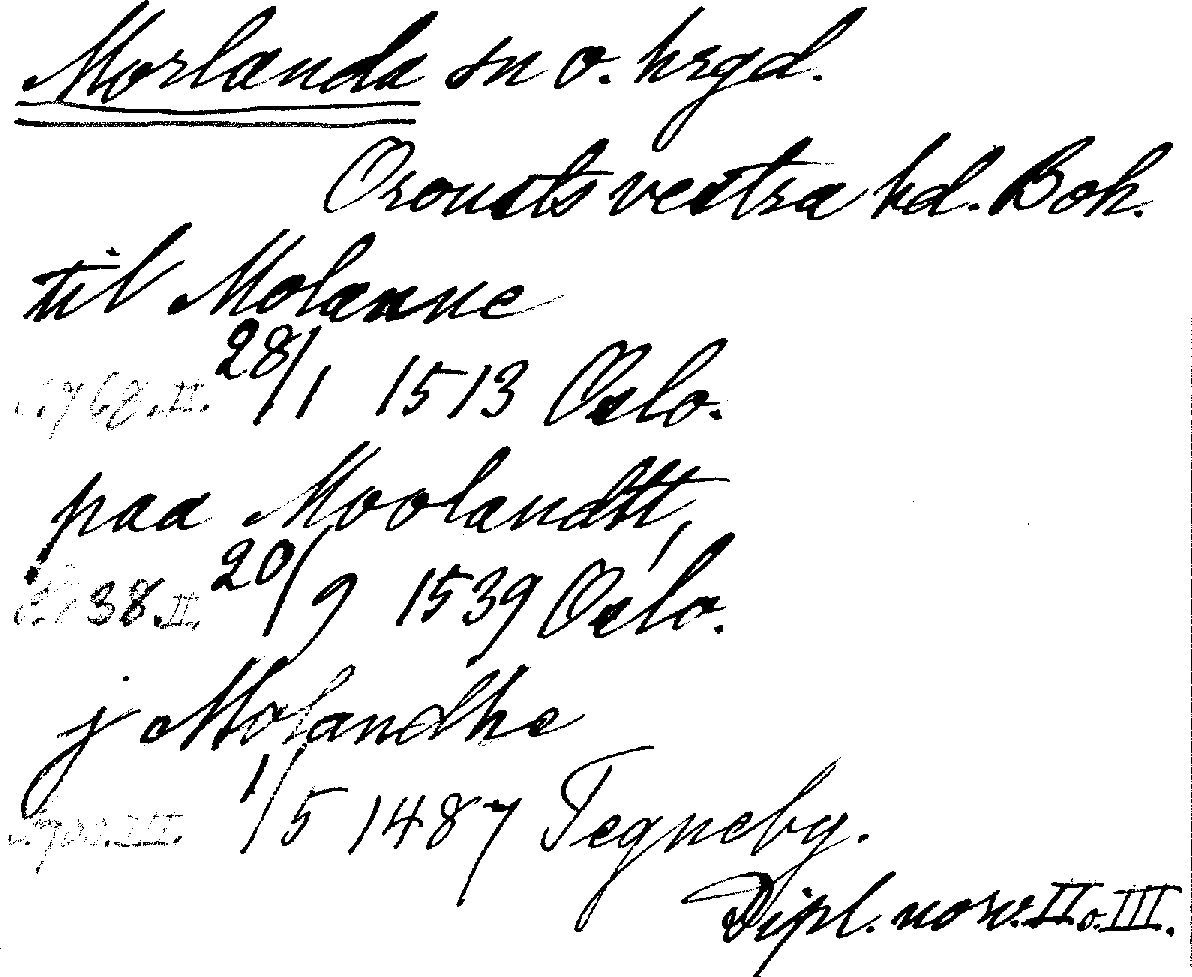 Morlanda sn o. hrgd.
Orousts vestra hd. Boh.
til Molanne
s. 768. II. 28/1 1513 Oslo.
paa Moolandtt,
38. II. 20/9 1539 Oslo.
j Molandhe
III. 1/5 1487 Tegneby.
Dipl. norv. II o. III.